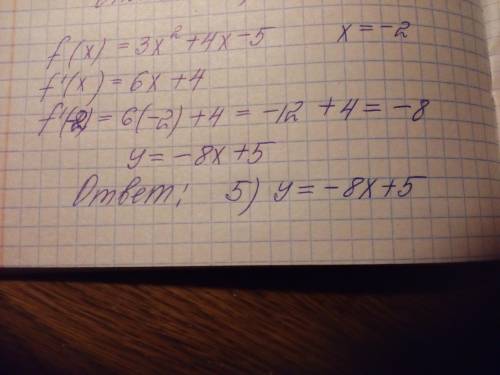 f(x) = 3x² + 4x - 5 x = -2
f'(x) = 6x + 4
f'(-2) = 6(-2) + 4 = -12 + 4 = -8
y = -8x + 5
Ответ: 5) y = -8x + 5